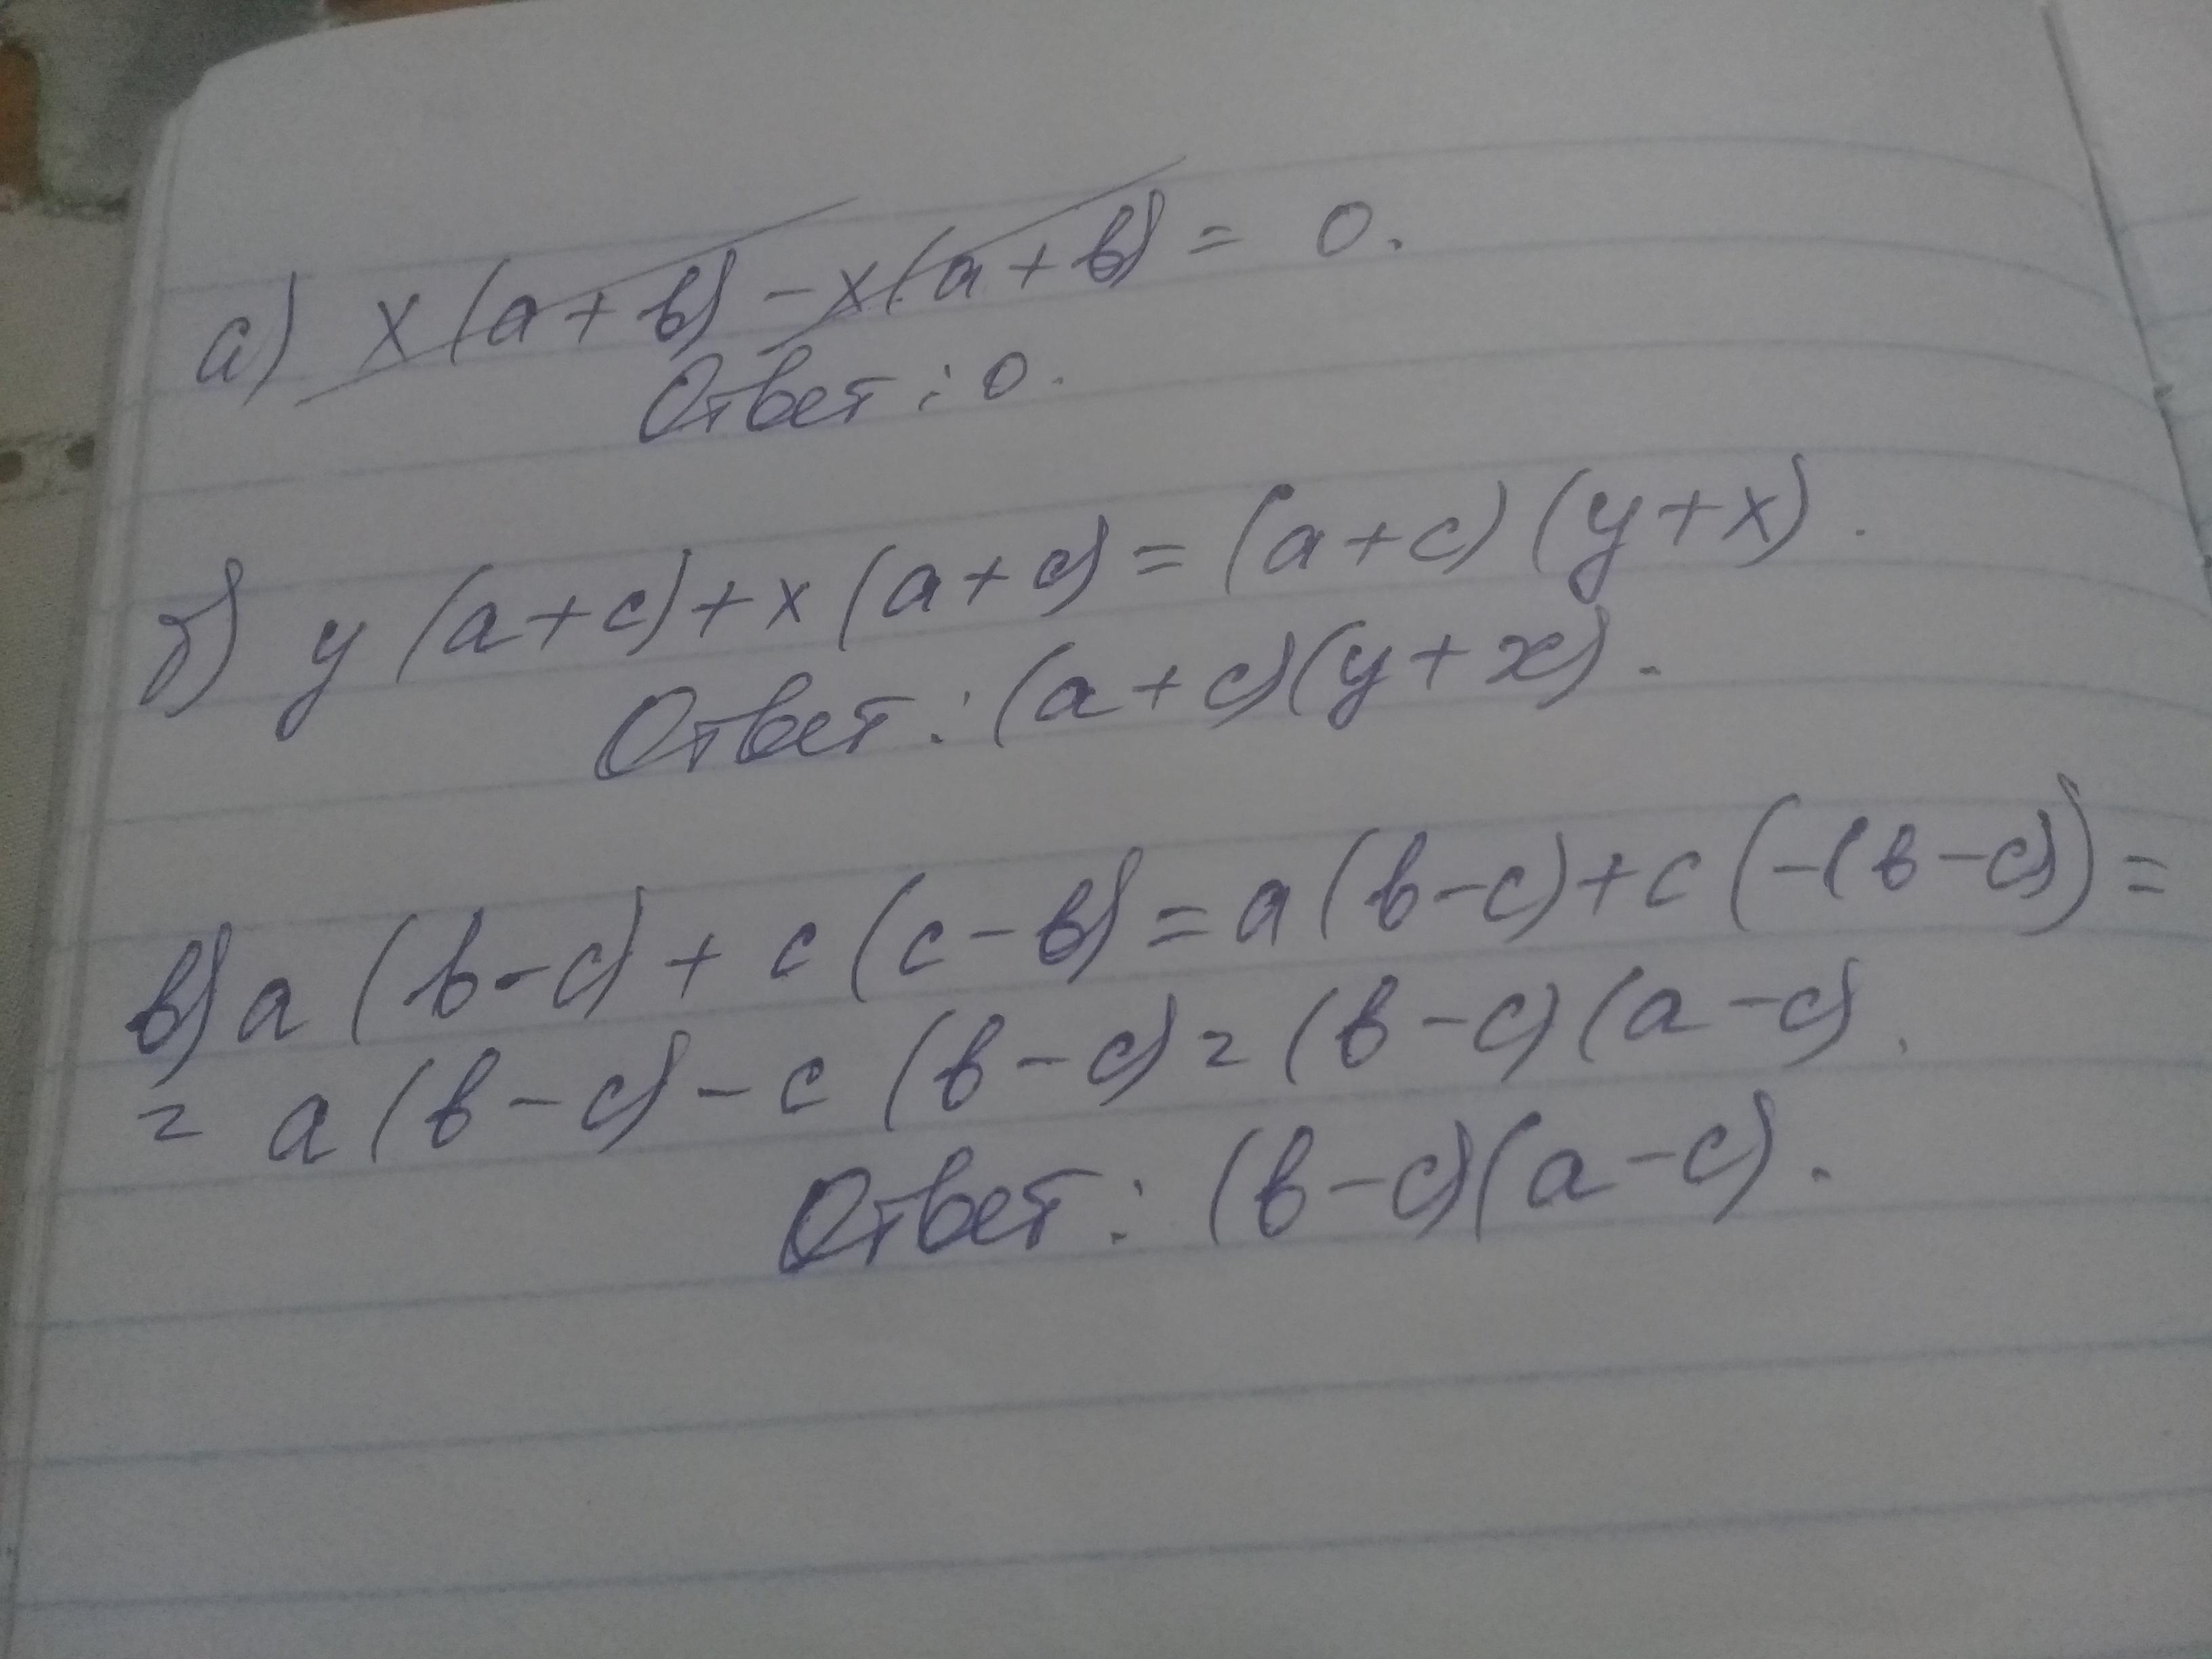 а) x(a+b)-x(a+b)= 0.
Ответ: 0.
б) y(a+c)+x(a+c)=(a+c)(y+x).
Ответ: (a+c)(y+x).
в) a(b-c)+c(c-b)=a(b-c)+c(-(b-c))=
= a(b-c)-c(b-c)=(b-c)(a-c).
Ответ: (b-c)(a-c).